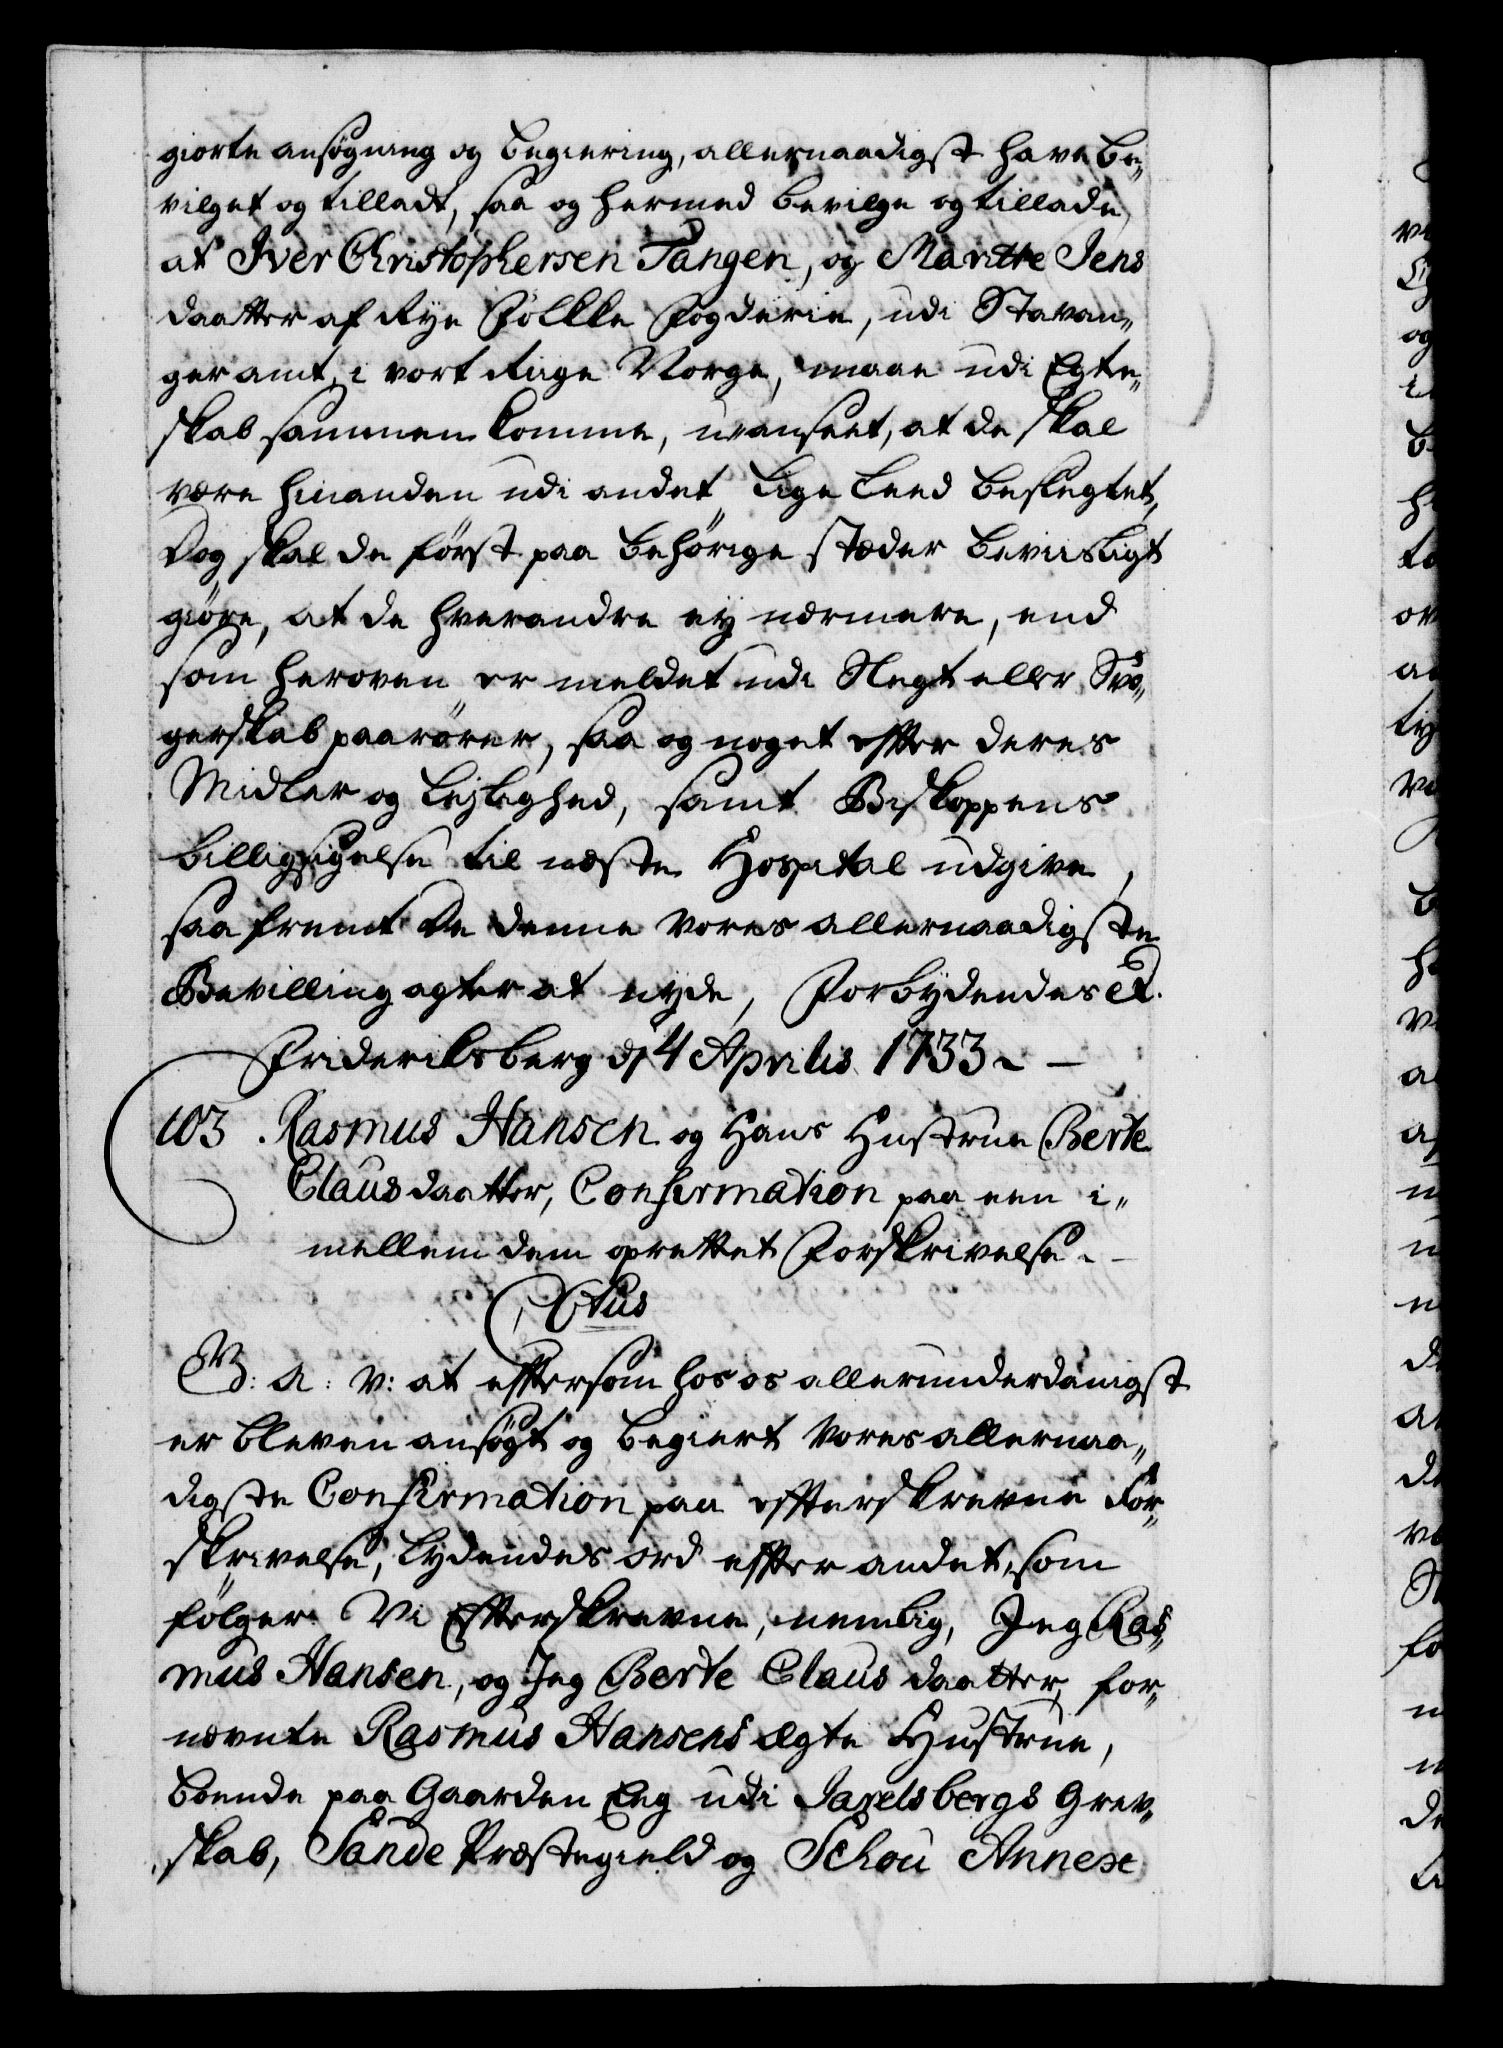 giorte ansøgning og begiering, allernaadigst have be„
vilget og tilladt, saa og hermed bevilge og tillade,
at Iver Christophersen Tangen, og Maritte Jens
daatter af Rye Fölkke Fogderie, udi Stavan„
ger amt, i vort Riige Norge, maae udi Egte„
skab sammen komme, uanseet, at de skal
være hinanden udi andet Lige Leed beslegtet,
Dog skal de først paa behørige stæder beviisligt
giøre, at de hverandre ej nærmere, end
som heroven er meldet udi Slegt eller Svo„
gerskab paarører, saa og noget efter deres
Midler og Lejlighed, samt Biskoppens
billigsigelse til næste Hospital udgive,
saa fremt De denne Vores allernaadigste
Bevilling agter at nyde, Forbydendes et.
Frideriksberg d 4 Aprilis 1733 –
103 Rasmus Hansen og Hans Hustrue Berte
Clausdaatter, Confirmation paa een i„
mellem dem oprettet Forskrivelse.
C6tus
G: A: V: at eftersom hos os allerunderdanigst
er bleven ansøgt og begiert Vores allernaa„
digste Confirmation paa efterskrevne For„
skrivelse, lydendes ord efter andet, som
følger. Vi Efterskrevne, nemlig, Jeg Ras„
mus Hansen, og Jeg Berte Claus daatter, for„
nævnte Rasmus Hansens ægte Hustrue,
boende paa Gaarden Eeg udi Jarelsbergs Grev„
skab, Sande Præstegield og Schou Annexe